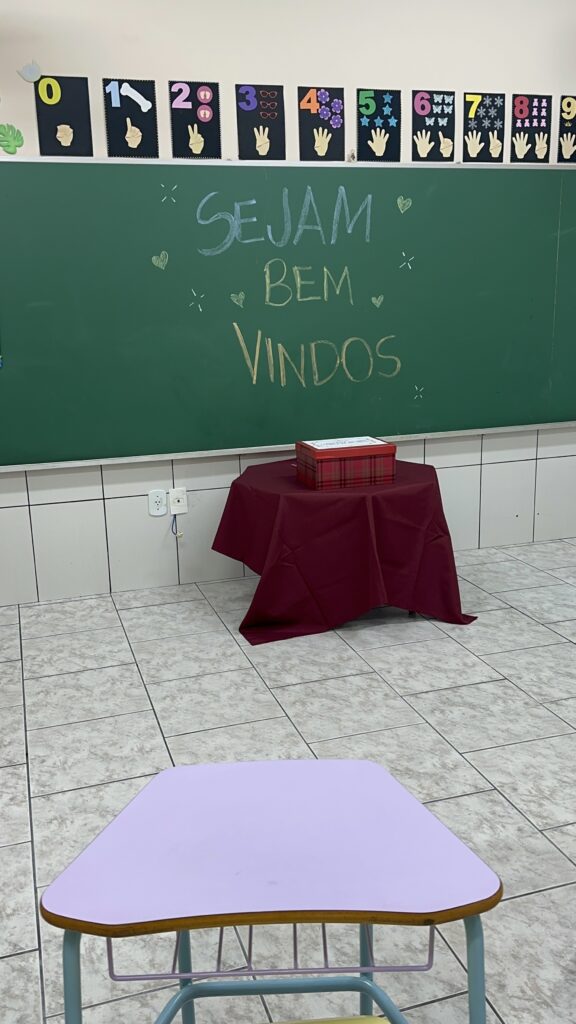 0 1 2 3 4 5 6 7 8 9
SEJAM
BEM
VINDOS